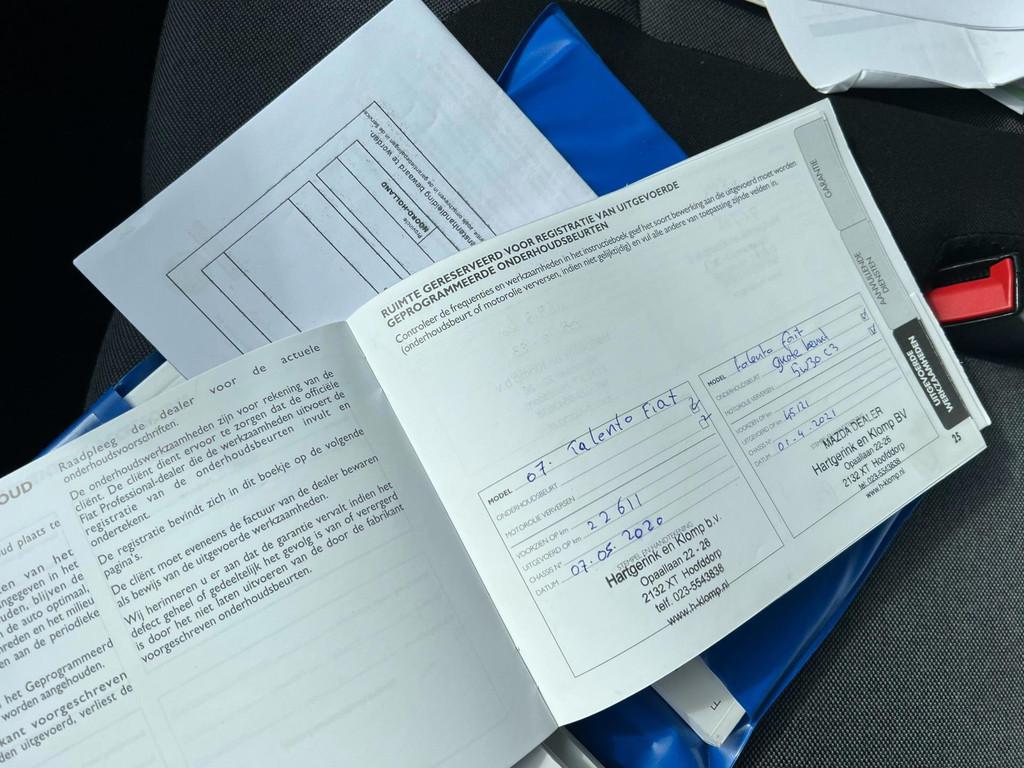 instandhouding bewaard te worden.
NOORD-HOLLAND
Provincie
OUD
ud plaats te
en van het
ngegeven in het
uden, blijven de
n de auto optimaal,
reden en het milieu
en aan de periodieke
f het Geprogrammeerd
worden aangehouden.
kant voorgeschreven
den uitgevoerd, verliest de
Raadpleeg de dealer voor de actuele
onderhoudsvoorschriften.
De onderhoudswerkzaamheden zijn voor rekening van de
cliënt. De cliënt dient ervoor te zorgen dat de officiële
Fiat Professional-dealer die de werkzaamheden uitvoert de
registratie van de onderhoudsbeurten invult en
ondertekent.
De registratie bevindt zich in dit boekje op de volgende
pagina's.
De cliënt moet eveneens de factuur van de dealer bewaren
als bewijs van de uitgevoerde werkzaamheden.
Wij herinneren u er aan dat de garantie vervalt indien het
defect geheel of gedeeltelijk het gevolg is van of verergerd
is door het niet laten uitvoeren van de door de fabrikant
voorgeschreven onderhoudsbeurten.
RUIMTE GERESERVEERD VOOR REGISTRATIE VAN UITGEVOERDE
GEPROGRAMMEERDE ONDERHOUDSBEURTEN
Controleer de frequenties en werkzaamheden in het instructieboek geef het soort bewerking aan die uitgevoerd moet worden
(onderhoudsbeurt of motorolie verversen, indien niet gelijktijdig) en vul alle andere van toepassing zijnde velden in.
MODEL 07. Talento Fiat
ONDERHOUDSBEURT
MOTOROLIE VERVERSEN
VOORZIEN OP km
UITGEVOERD OP km 22611
CHASSIS N°
DATUM 07.05.2020
STEMPEL EN HANDTEKENING
Hartgerink en Klomp b.v.
Opaallaan 22 - 26
2132 XT Hoofddorp
telf. 023-5543838
www.h-klomp.nl
MODEL Talento Fiat
ONDERHOUDSBEURT Grote beurt
MOTOROLIE VERVERSEN 5W30 C3
VOORZIEN OP km
UITGEVOERD OP km
CHASSIS N°
DATUM 01.4.2021
MAZDA DEALER
Hartgerink en Klomp BV
Opaallaan 22-26
2132 XT Hoofddorp
tel. 023-5543838
www.h-klomp.nl
GARANTIE
AANVULLENDE
DIENSTEN
UITGEVOERDE
WERKZAAMHEDEN
25